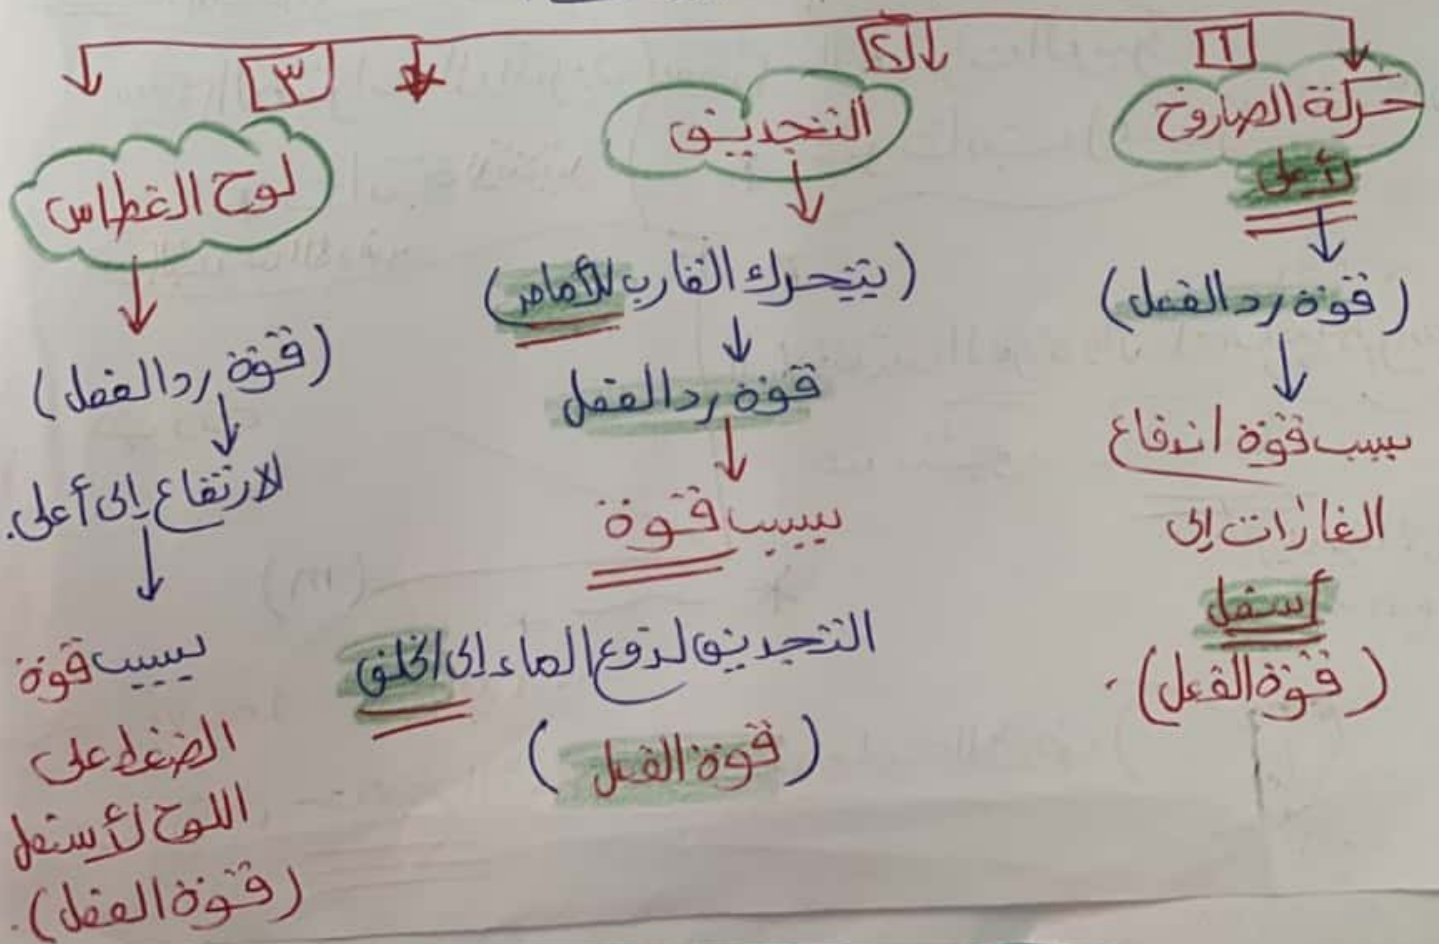 ١
حركة الصاروخ
لأعلى
(قوة رد الفعل)
بسبب قوة اندفاع
الغازات إلى
أسفل
(قوة الفعل).
٢
التجديف
(يتحرك القارب للأمام)
قوة رد الفعل
بسبب قوة
التجديف لدفع الماء إلى الخلف
(قوة الفعل)
٣
لوح الغطاس
(قوة رد الفعل)
لارتفاع إلى أعلى.
بسبب قوة
الضغط على
اللوح لأسفل
(قوة الفعل).